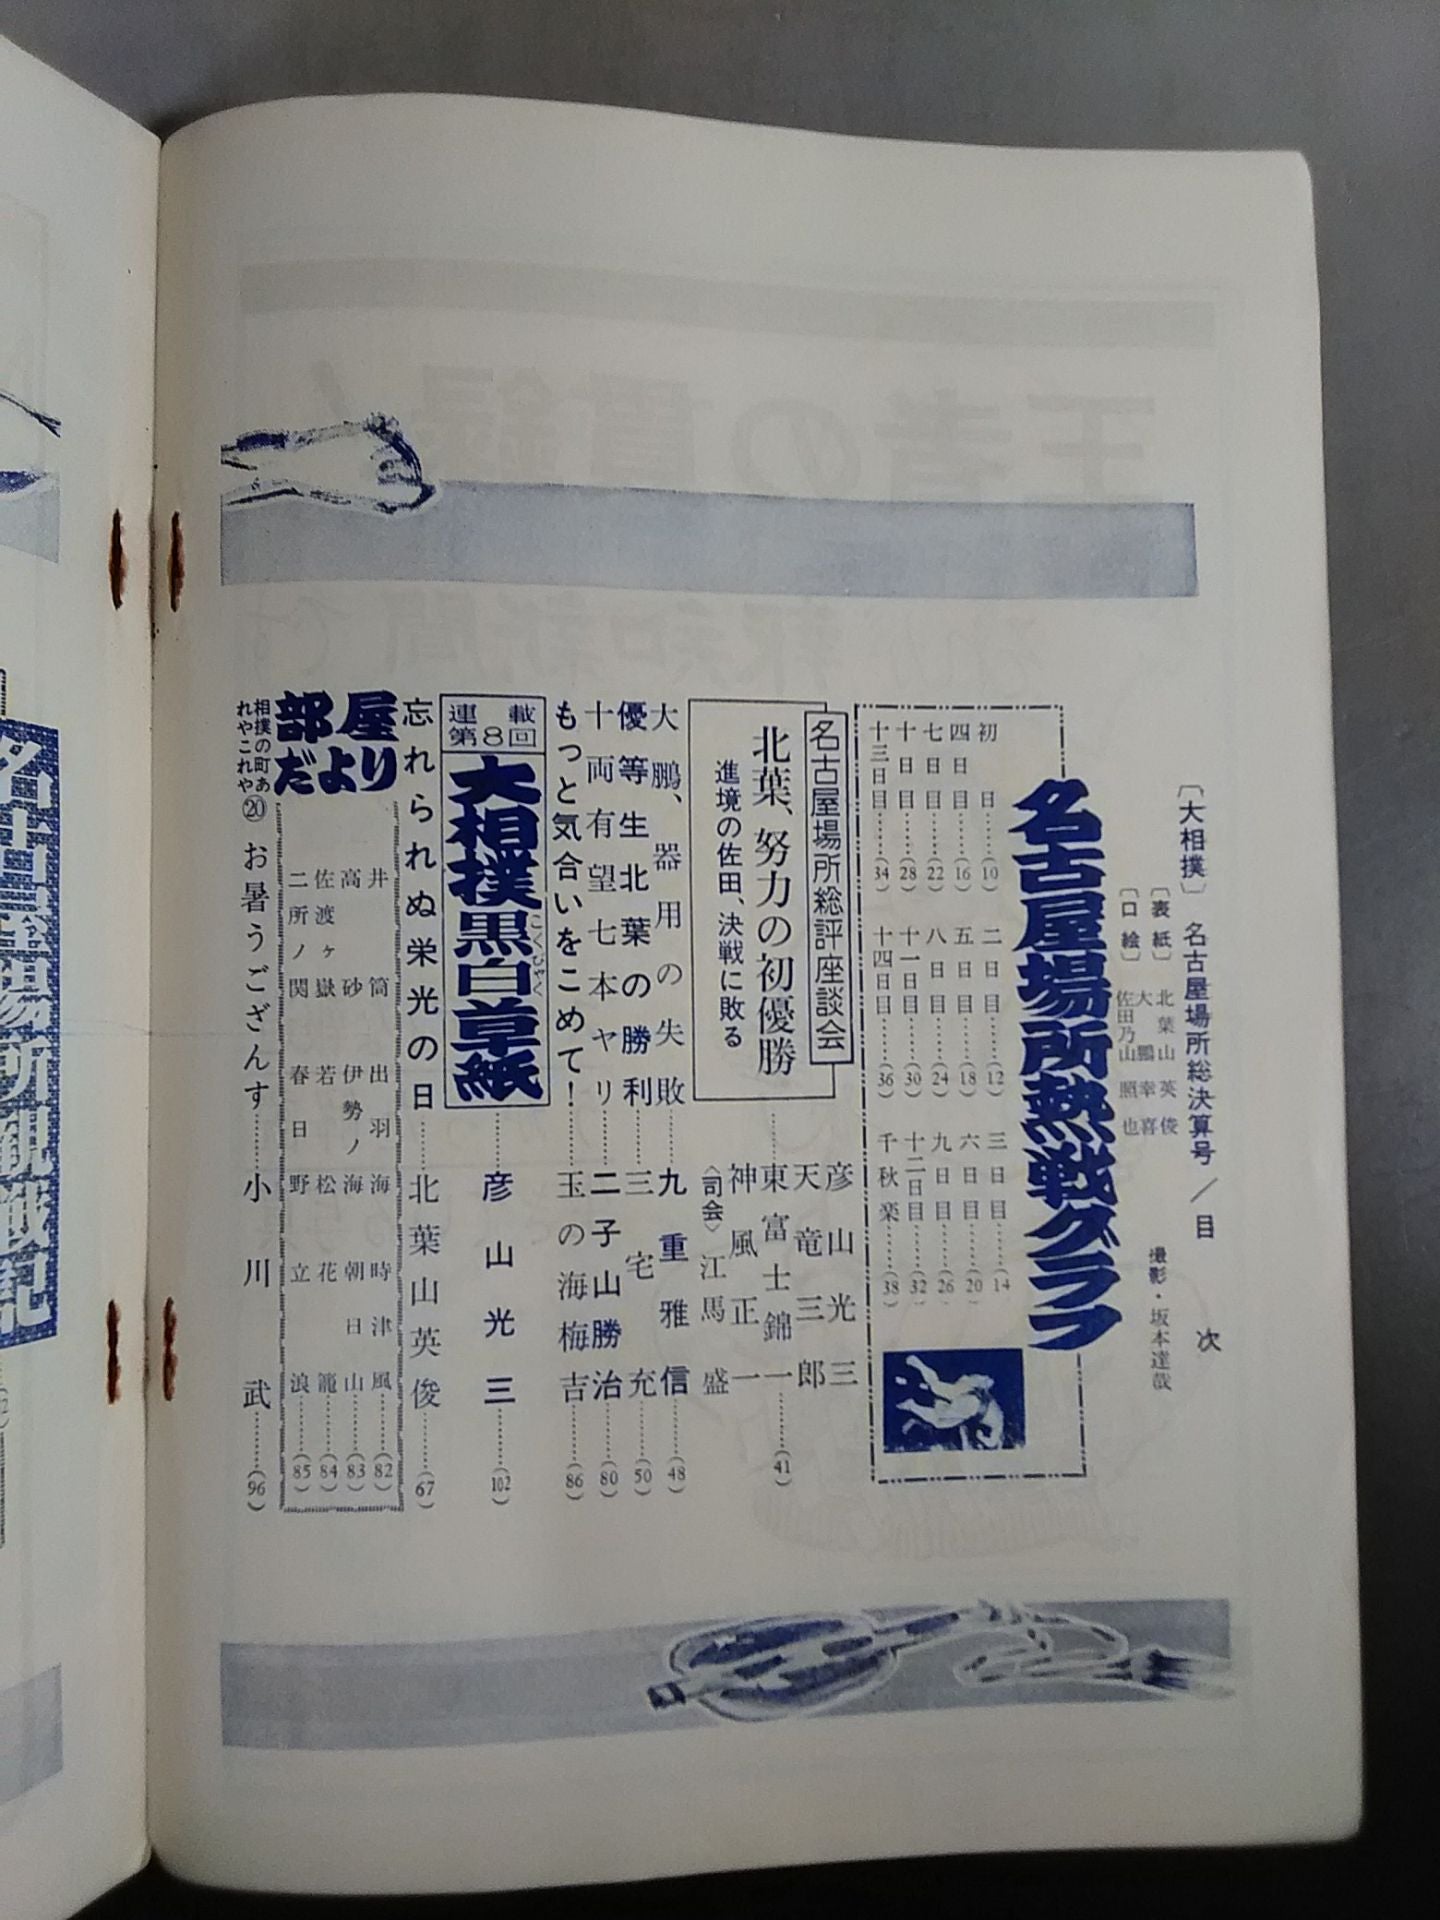 〔大相撲〕 名古屋場所総決算号／目 次
〔表紙〕 北葉山英俊
大鵬幸喜
〔口絵〕 佐田乃山照也
撮影・坂本達哉
名古屋場所熱戦グラフ
初日……(10) 二日目……(12) 三日目……(14)
四日目……(16) 五日目……(18) 六日目……(20)
七日目……(22) 八日目……(24) 九日目……(26)
十日目……(28) 十一日目……(30) 十二日目……(32)
十三日目……(34) 十四日目……(36) 千秋楽……(38)
名古屋場所総評座談会
北葉、努力の初優勝
進境の佐田、決戦に敗る
彦山光三
天竜三郎
……東富士錦一……(41)
神風正一
〈司会〉江馬盛
大鵬、器用の失敗……九重雅信……(48)
優等生北葉の勝利……三宅充……(50)
十両有望七本ヤリ……二子山勝治……(80)
もっと気合いをこめて！……玉の海梅吉……(86)
連載第8回
大相撲黒白草紙……彦山光三……(102)
こくびゃく
忘れられぬ栄光の日……北葉山英俊……(67)
部屋だより
井筒 出羽海 時津風……(82)
高砂 伊勢ノ海 朝日山……(83)
佐渡ヶ嶽 若松 花籠……(84)
二所ノ関 春日野 立浪……(85)
相撲の町あれやこれや⑳ お暑うござんす……小川武……(96)